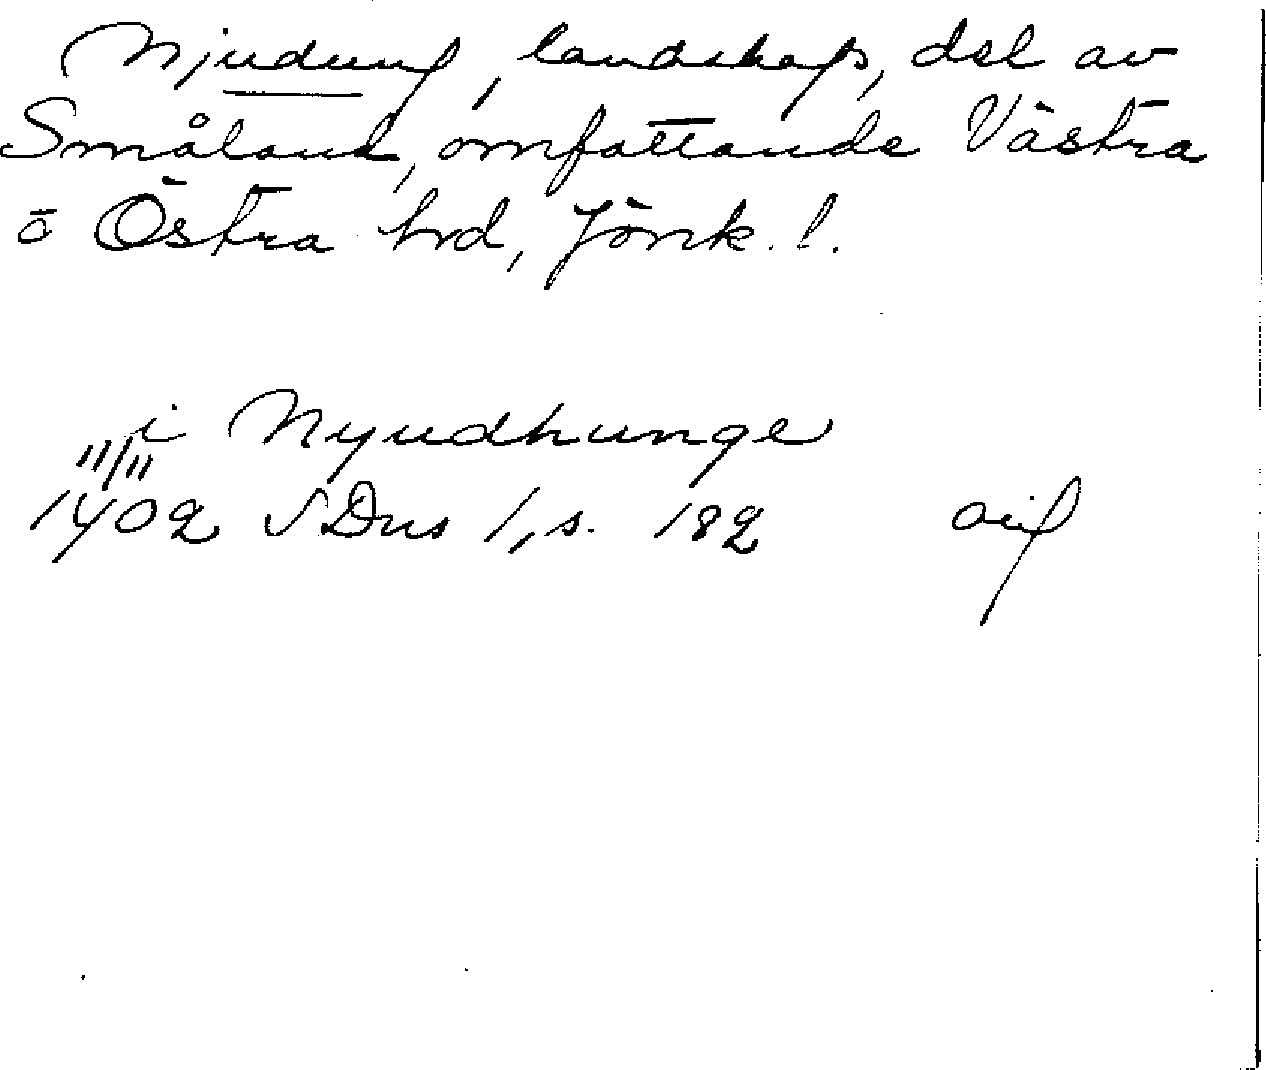 Njudung, landskap, del av
Småland, omfattande Västra
o Östra hrd, Jönk. l.
i Nyudhunge
11/11
1402 SDns 1, s. 182